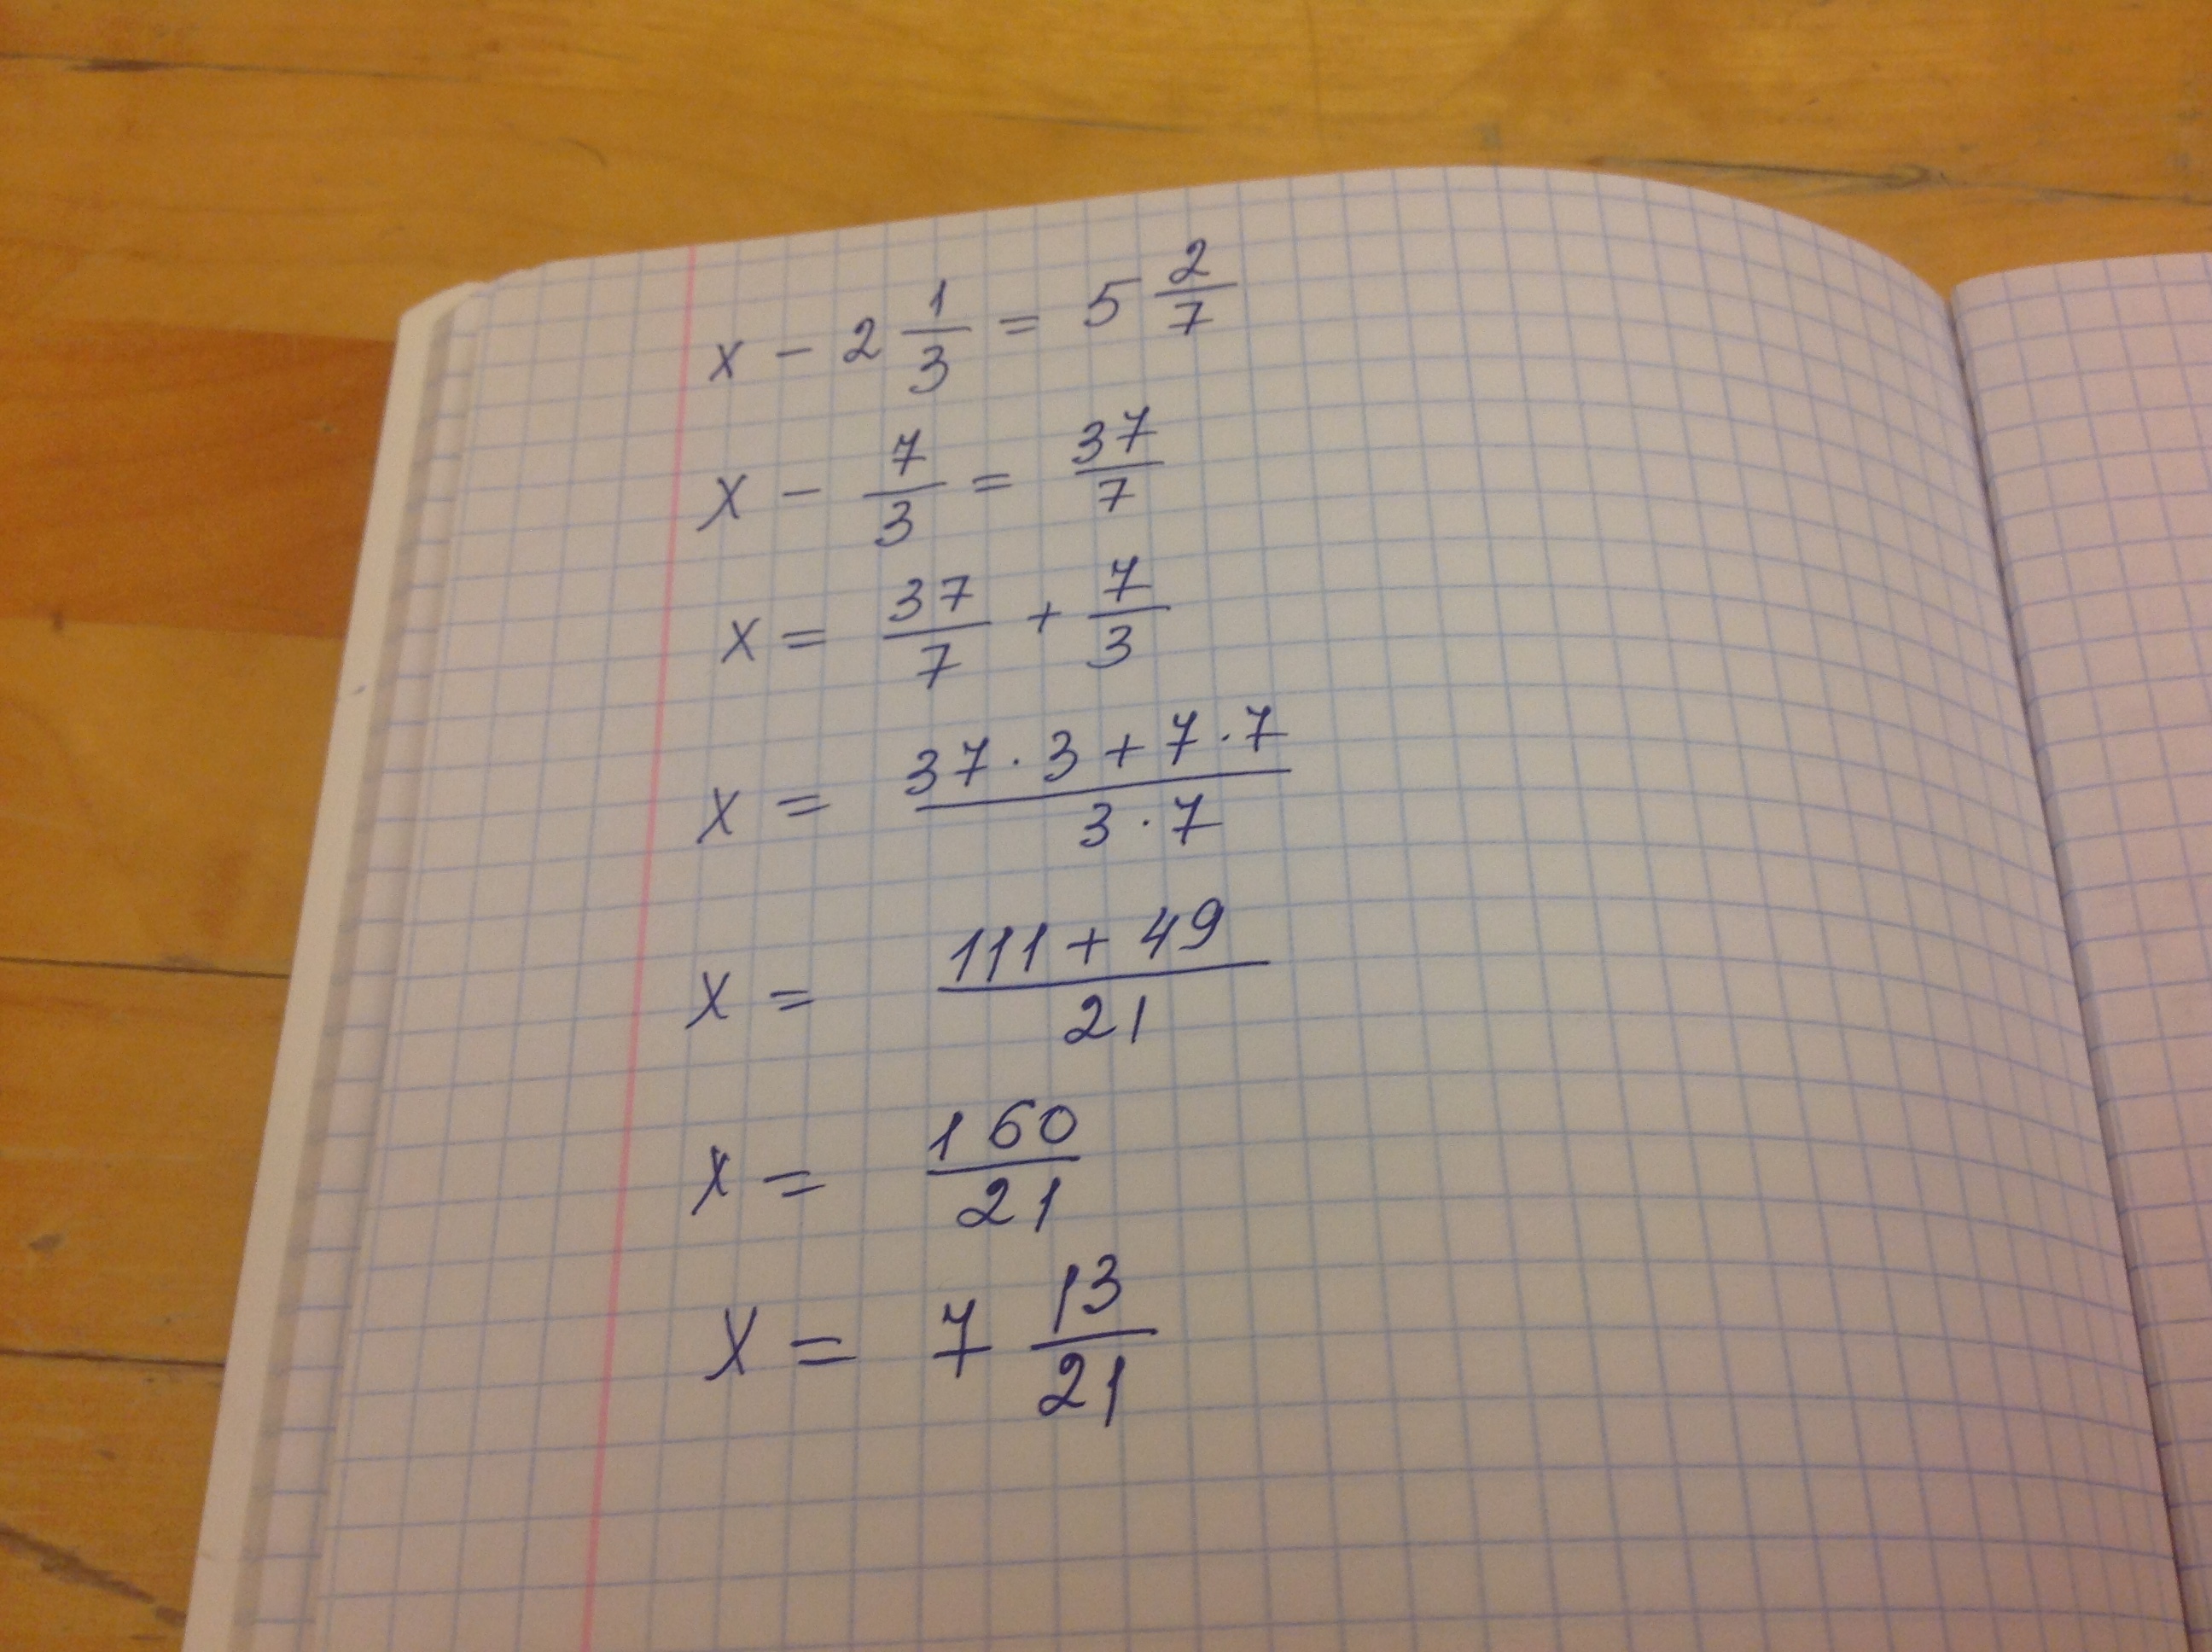 x - 2 1/3 = 5 2/7
x - 7/3 = 37/7
x = 37/7 + 7/3
x = (37 · 3 + 7 · 7)/(3 · 7)
x = (111 + 49)/21
x = 160/21
x = 7 13/21